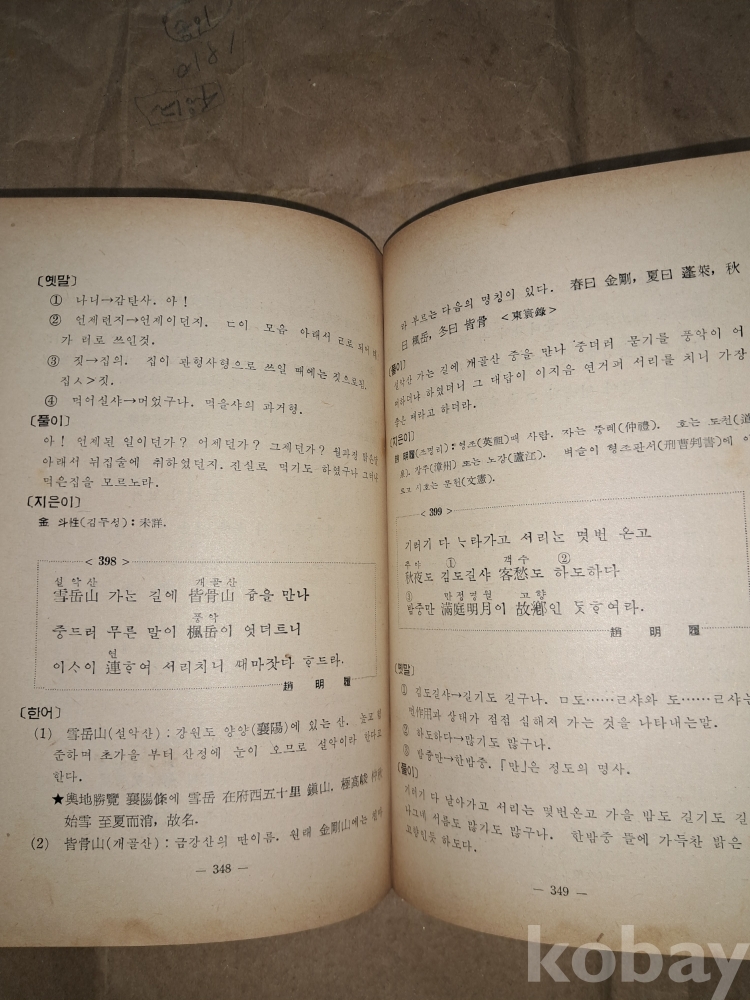 〔옛말〕
① 나니→감탄사. 아!
② 언제런지→언제이던지. ㄷ이 모음 아래서 ㄹ로 되어
가 리로 쓰인것.
③ 짓→집의. 집이 관형사형으로 쓰일 때에는 짓으로됨.
집ㅅ>짓.
④ 먹어실샤→먹었구나. 먹을샤의 과거형.
〔풀이〕
아! 언제된 일이던가? 어제던가? 그제던가? 월파정 밝은달
아래서 뉘집술에 취하였던지. 진실로 먹기도 하였구나 그러나
먹은집을 모르노라.
〔지은이〕
金 斗性(김두성): 未詳.
< 398 >
설악산 개골산
雪岳山 가는 길에 皆骨山 즁을 만나
풍악
중드러 무른 말이 楓岳이 엇더트니
연
이ᄉ이 連ᄒ여 서리치니 ᄯ매마잣다 ᄒ드라.
趙 明 履
〔한어〕
(1) 雪岳山(설악산): 강원도 양양(襄陽)에 있는 산. 높고
준하며 초가을 부터 산정에 눈이 오므로 설악이라 한다고
한다.
★輿地勝覽 襄陽條에 雪岳 在府西五十里 鎭山. 極高峻 仲秋
始雪 至夏而消, 故名.
(2) 皆骨山(개골산): 금강산의 딴이름. 원래 金剛山에는
— 348 —
라 부르는 다음의 명칭이 있다. 春曰 金剛, 夏曰 蓬萊, 秋
曰 楓岳, 冬曰 皆骨 <東寰錄>
〔풀이〕
설악산 가는 길에 개골산 중을 만나 중더러 묻기를 풍악이 어
떠하더냐 하였더니 그 대답이 이지음 연거퍼 서리를 치니 가장
좋은 때라고 하더라.
〔지은이〕
趙 明履(조명리): 영조(英祖)때 사람. 자는 중례(仲禮). 호는 도천(道
泉). 강주(漳州) 또는 노강(蘆江). 벼슬이 형조판서(刑曹判書)에 이
르고 시호는 문헌(文憲).
< 399 >
기러기 다 ᄂ라가고 서리ᄂ 몇번 온고
추야 ① 객수 ②
秋夜도 김도길샤 客愁도 하도하다
③ 만정명월 고향
밤중만 滿庭明月이 故鄕인 ᄃᆺᄒ여라.
趙 明 履
〔옛말〕
① 김도길샤→길기도 길구나. ㅁ도……ㄹ샤와 도……ㄹ샤는
번作用과 상대가 점점 심해져 가는 것을 나타내는말.
② 하도하다→많기도 많구나.
③ 밤중만→한밤중. 「만」은 정도의 명사.
〔풀이〕
기러기 다 날아가고 서리는 몇번온고 가을 밤도 길기도 길
나그네 시름도 많기도 많구나. 한밤중 뜰에 가득찬 밝은
고향인듯 하도다.
— 349 —
kobay